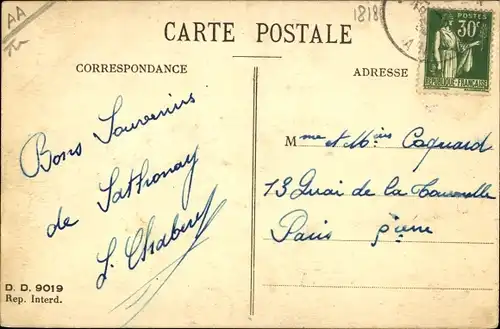 AA
1818
CARTE POSTALE
POSTES
30c
REPUBLIQUE FRANÇAISE
CORRESPONDANCE
ADRESSE
Bons Souvenirs
de Sathonay
Mme et Mrs Coquard
13 Quai de la Tournelle
Paris 5ième
D. D. 9019
Rep. Interd.